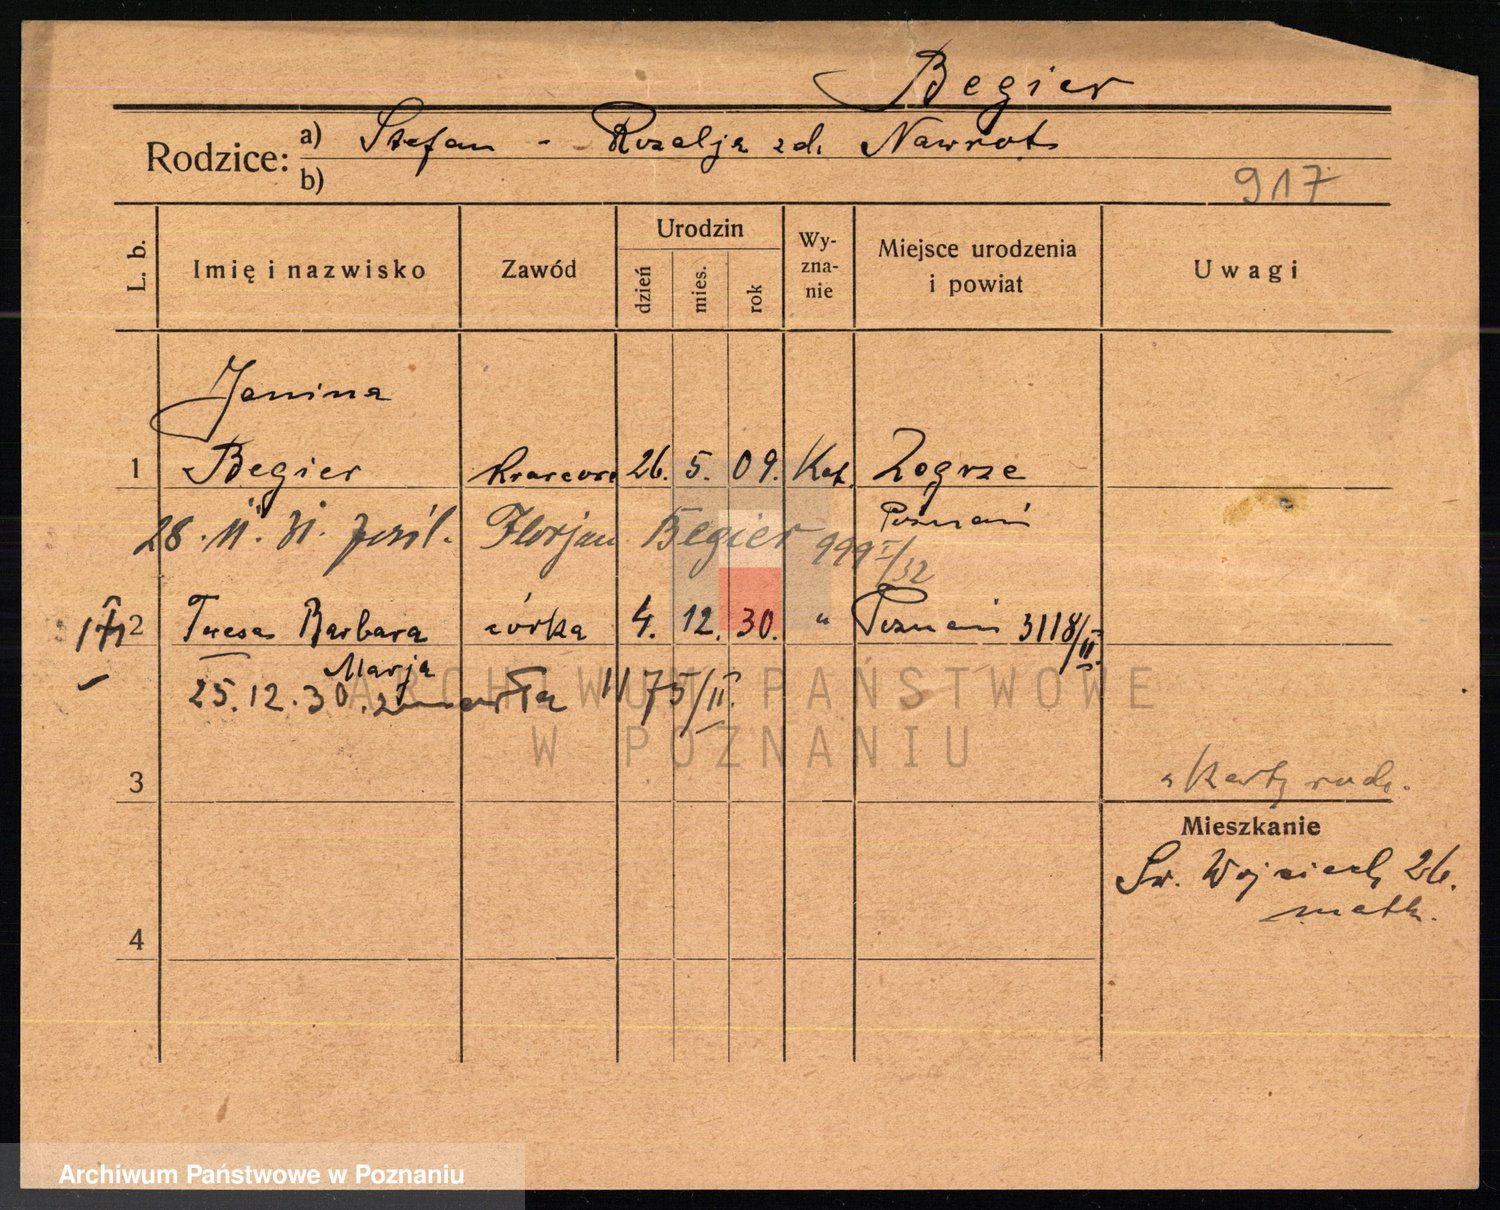 Begier
Rodzice: a) Stefan - Rozalja zd. Nawrot
b)
917
L. b. Imię i nazwisko Zawód Urodzin dzień mies. rok Wy-zna-nie Miejsce urodzenia i powiat Uwagi
Janina
1 Begier 26. 5. 09. Kat. Zegrze
Poznań
28. 11. 31. Florjan Begier 999 I/32
2 Teresa Barbara córka 4. 12. 30. " Poznań 3118/II
Marja
25. 12. 30. zmarła 1175/II.
ARCHIWUM PAŃSTWOWE
W POZNANIU
3
Karty rodz.
Mieszkanie
Św. Wojciech 26.
matk.
4
Archiwum Państwowe w Poznaniu